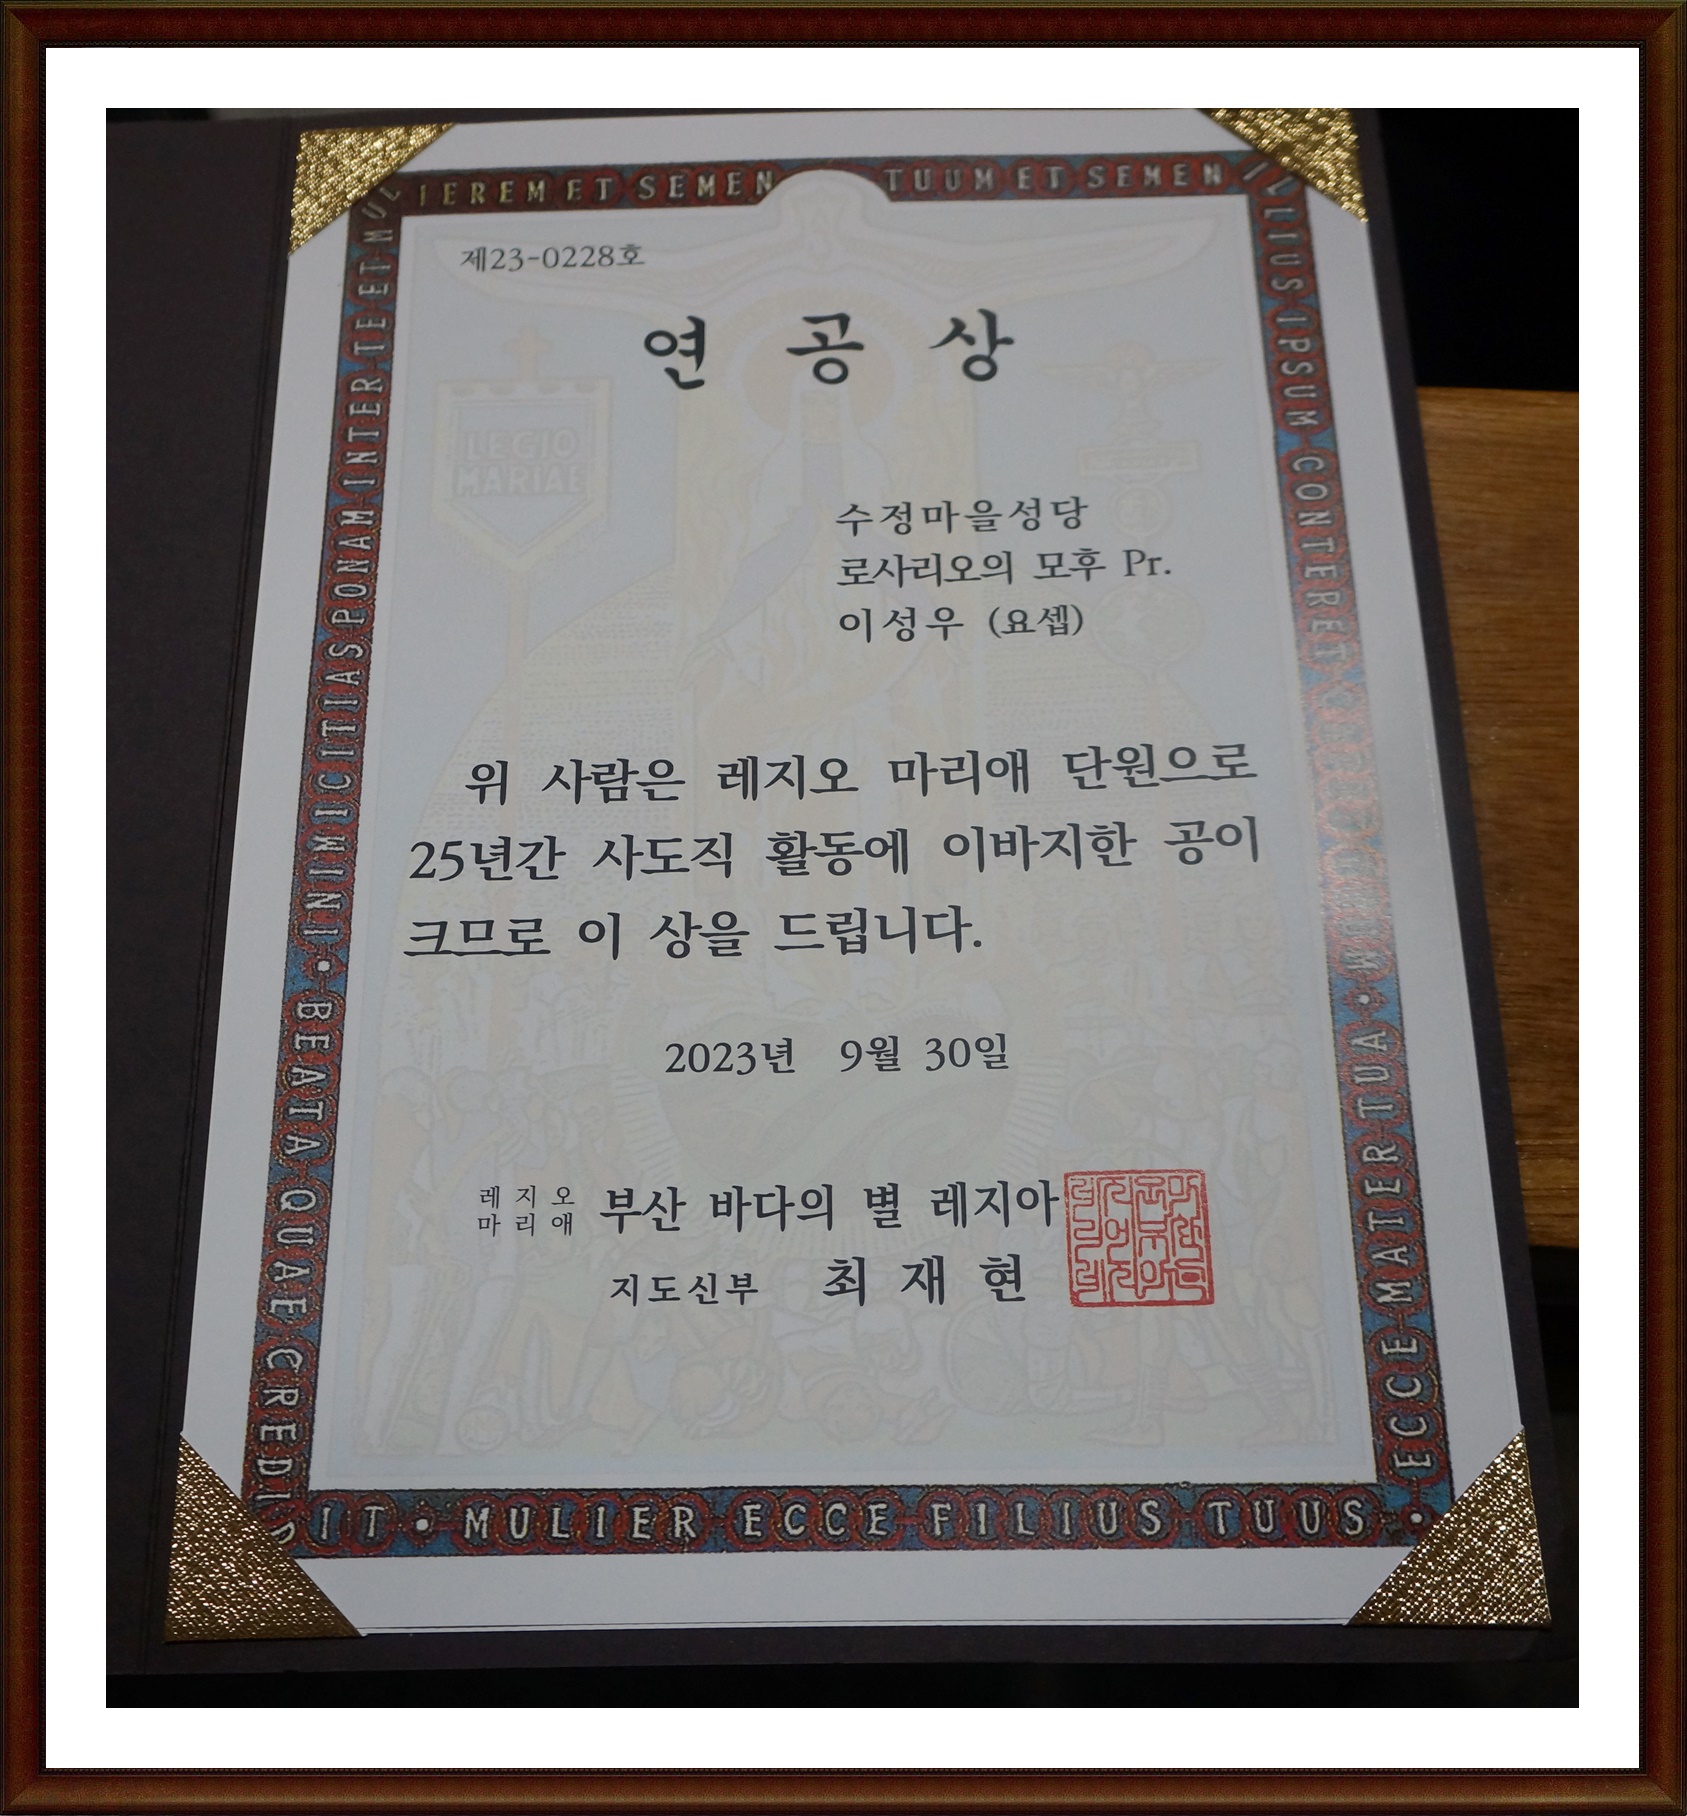 IEREM ET SEMEN TUUM ET SEMEN ILLIUS IPSUM CONTERET
INIMICITIAS PONAM INTER TE ET MUL
BEATA QUAE CREDIDIT
MULIER ECCE FILIUS TUUS
ECCE MATER TUA
제23-0228호
연 공 상
LEGIO
MARIAE
수정마을성당
로사리오의 모후 Pr.
이성우 (요셉)
위 사람은 레지오 마리애 단원으로
25년간 사도직 활동에 이바지한 공이
크므로 이 상을 드립니다.
2023년 9월 30일
레지오
마리애
부산 바다의 별 레지아
지도신부 최 재 현